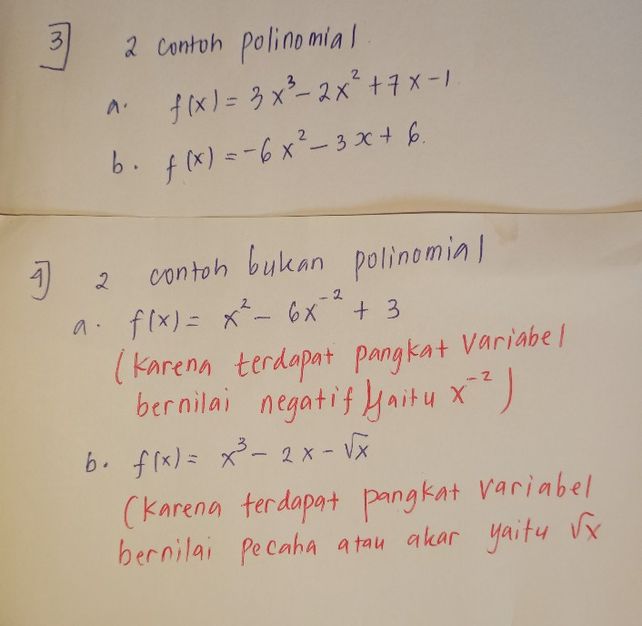 3] 2 contoh polinomial.
a. f(x) = 3x³ – 2x² + 7x – 1
b. f(x) = –6x² – 3x + 6.
4] 2 contoh bukan polinomial
a. f(x) = x² – 6x⁻² + 3
(karena terdapat pangkat variabel
bernilai negatif yaitu x⁻²)
b. f(x) = x³ – 2x – √x
(karena terdapat pangkat variabel
bernilai pecaha atau akar yaitu √x